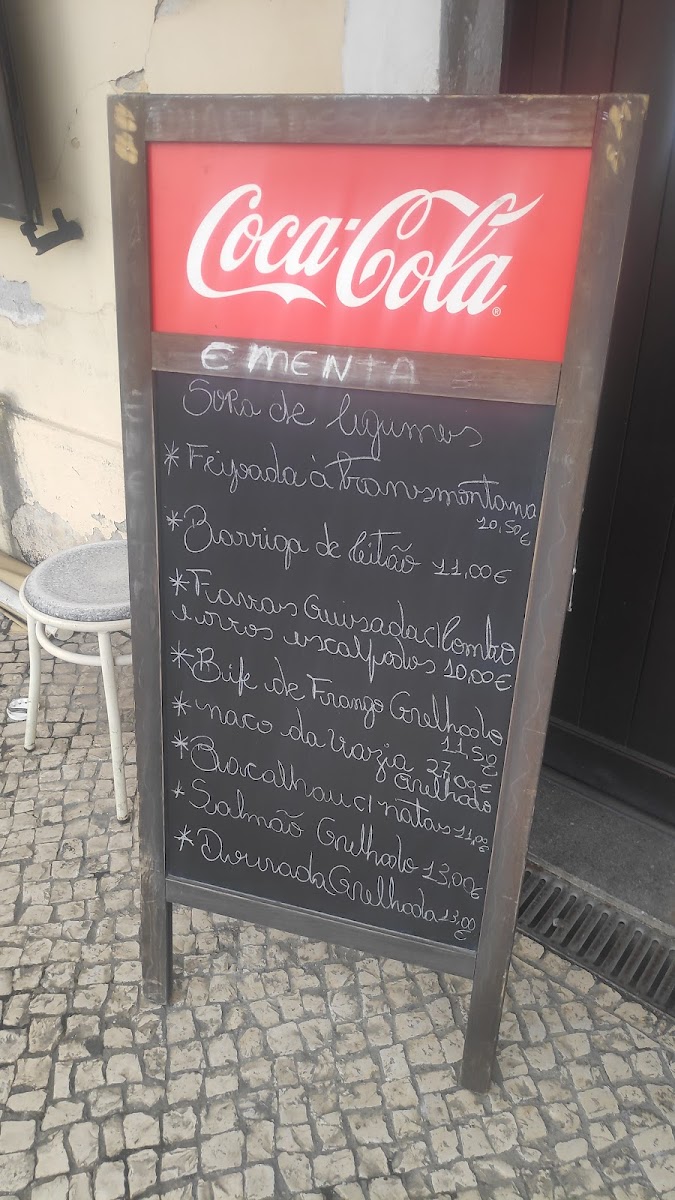 Coca-Cola
EMENTA
Sopa de legumes
* Feijoada à transmontana
10,50€
* Barriga de leitão 11,00€
* Favas Guisada c/ lombo
e ovos escalfados 10,00€
* Bife de Frango Grelhado
11,50
* naco da vazia 27,00€
Grelhado
* Bacalhau c/ natas 11,00€
* Salmão Grelhado 13,00€
* Dourada Grelhada 13,00
€